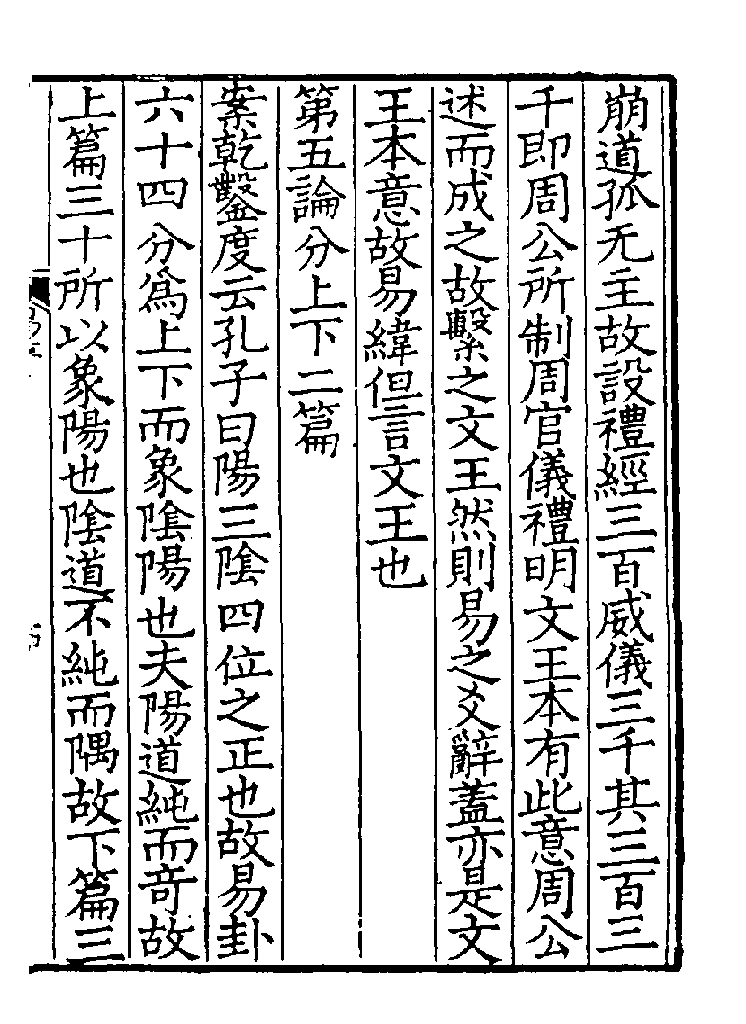 崩道孤无主故設禮經三百威儀三千其三百三
千即周公所制周官儀禮明文王本有此意周公
述而成之故繫之文王然則易之爻辭蓋亦是文
王本意故易緯但言文王也
第五論分上下二篇
案乾鑿度云孔子曰陽三陰四位之正也故易卦
六十四分為上下而象陰陽也夫陽道純而奇故
上篇三十所以象陽也陰道不純而隅故下篇三